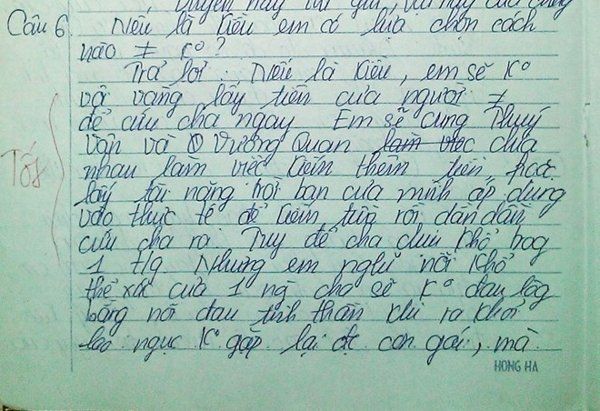 Câu 6. Nếu là Kiều em có lựa chọn cách
nào ≠ k°?
Trả lời: Nếu là Kiều, em sẽ k°
vội vàng lấy tiền của người ≠
để cứu cha ngay. Em sẽ cùng Thuý
Vân và Vương Quan làm việc chia
nhau làm việc kiếm thêm tiền hoặc
lấy tài năng trời ban của mình áp dụng
vào thực tế để kiếm tiền rồi dần dần
cứu cha ra. Tuy để cha chịu khổ trog
1 t/g. Nhưng em nghĩ nỗi khổ
thể xác của 1 ng cha sẽ k° đau lòg
bằng nỗi đau tinh thần khi ra khỏi
lao ngục k° gặp lại đc con gái, mà
Tốt
HONG HA